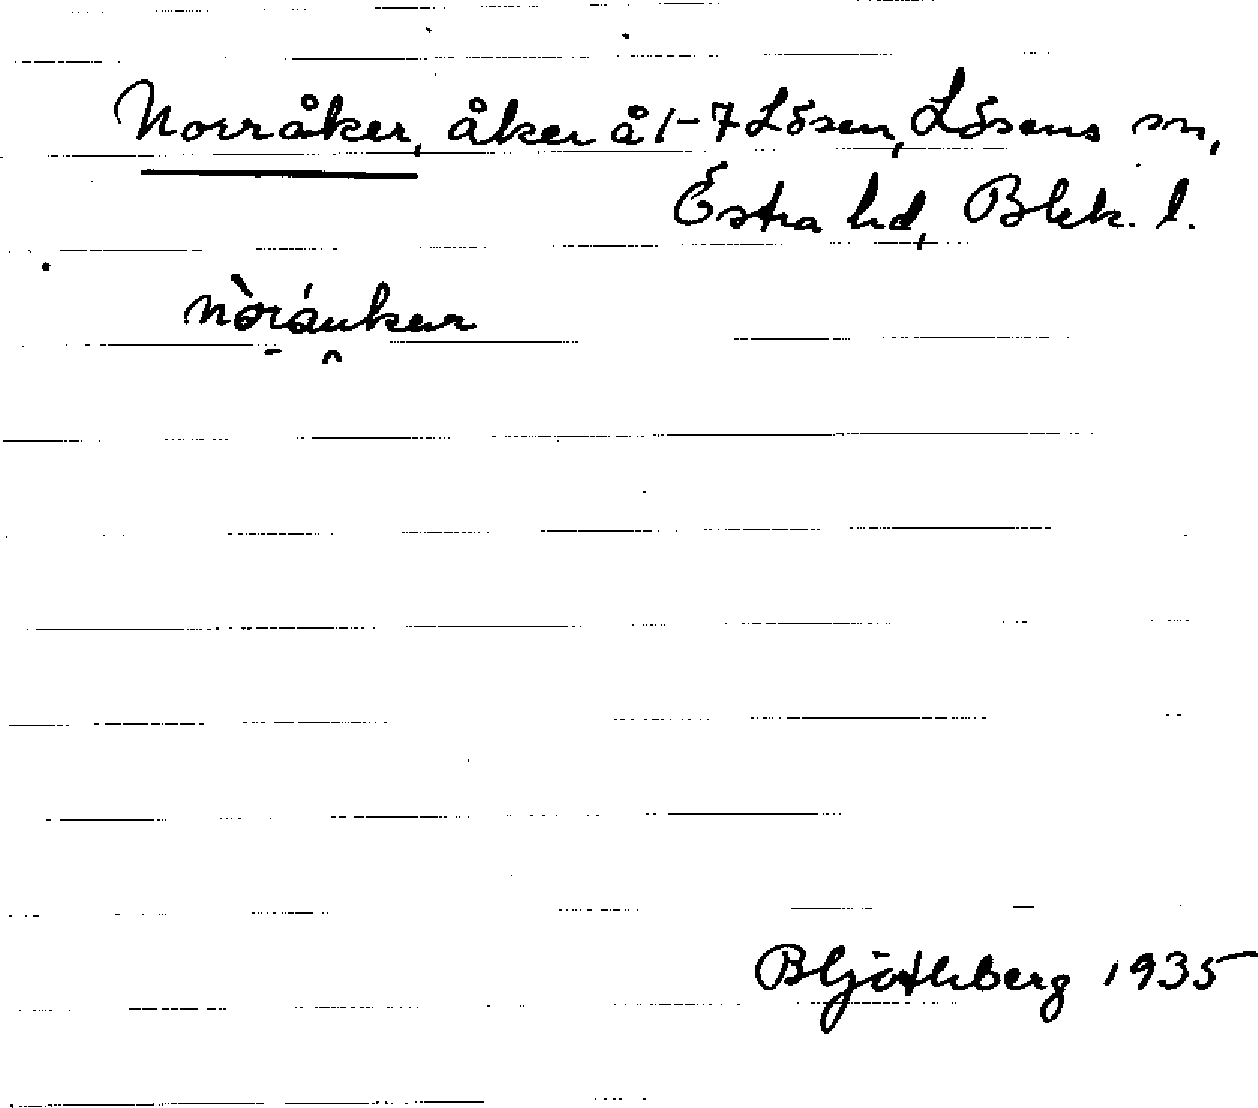 Norråker, åker å 1-7 Lösen, Lösens sn,
Östra hd, Blek. l.
B Göthberg 1935